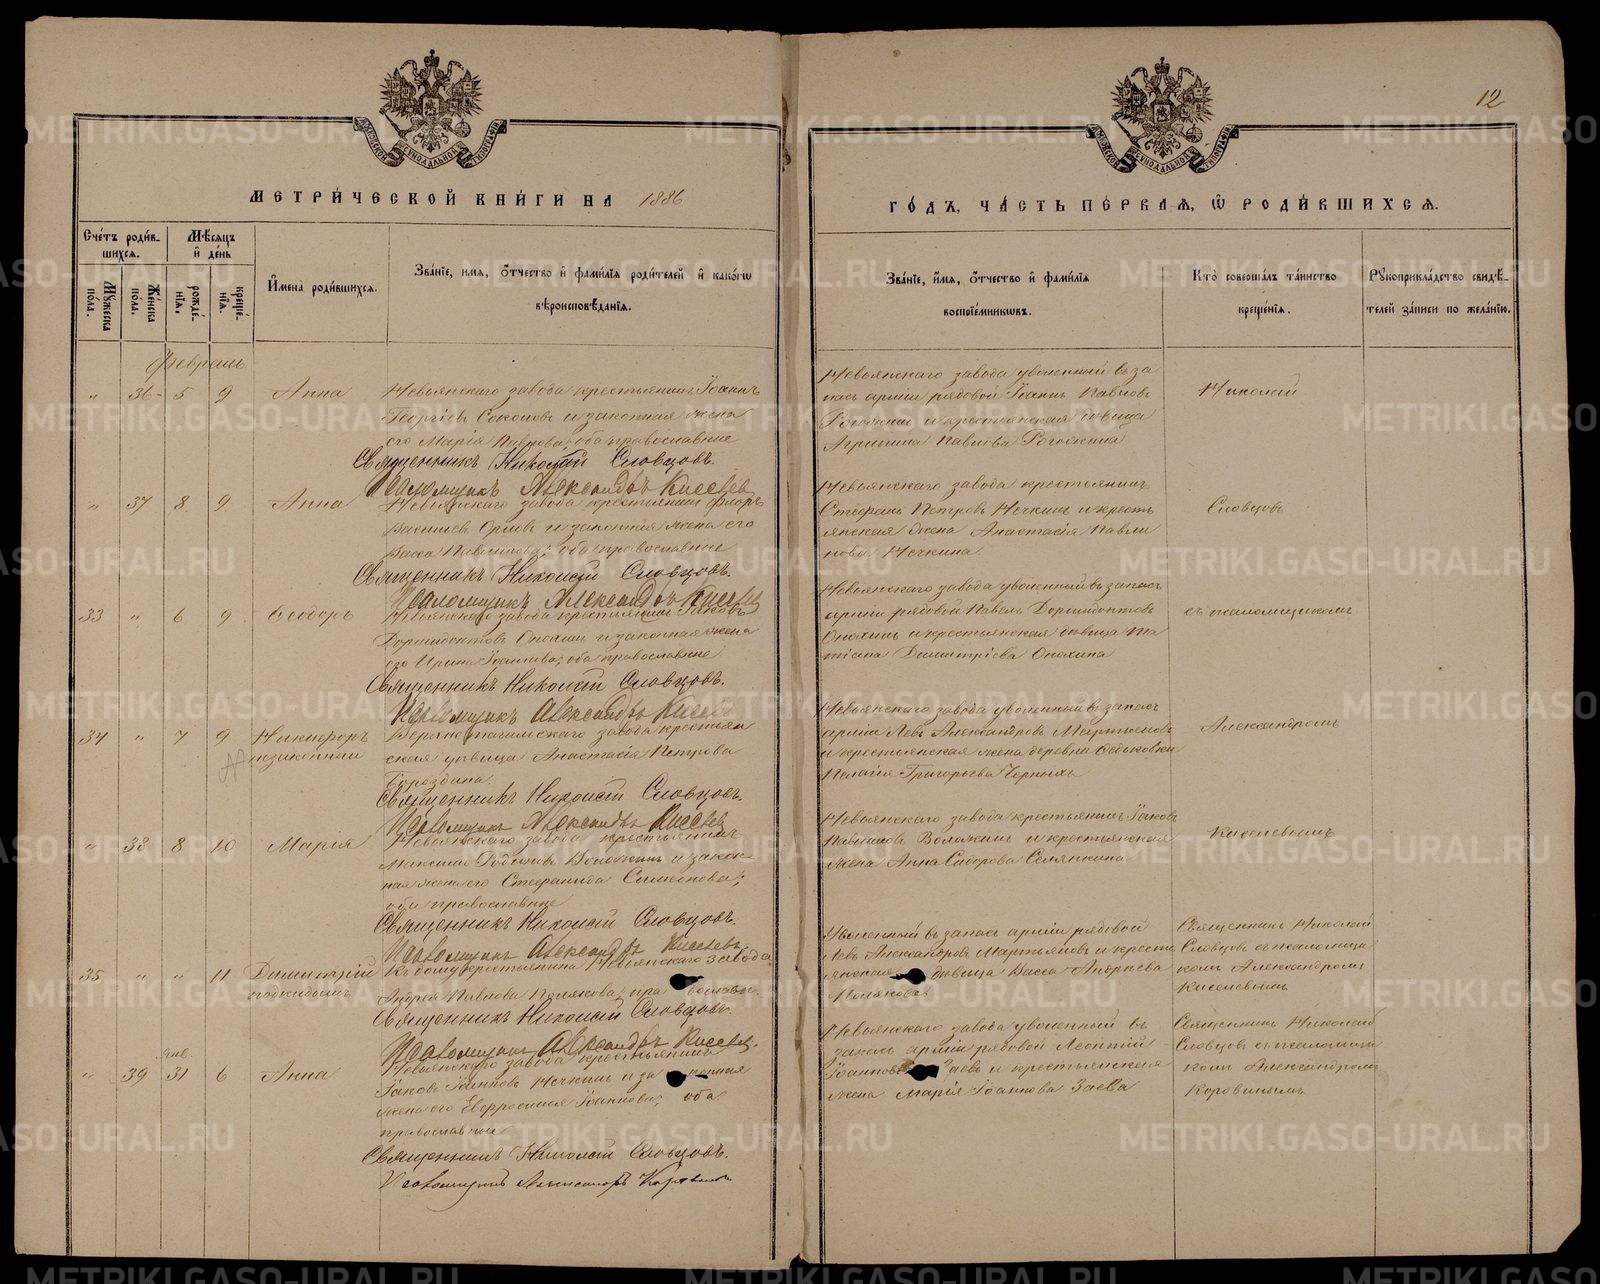 12
МОСКОВСКОЙ СѴНОДАЛЬНОЙ ТИПОГРАФІИ
МОСКОВСКОЙ СѴНОДАЛЬНОЙ ТИПОГРАФІИ
МЕТРИ́ЧЕСКОЙ КНИ́ГИ НА 1886
ГО́ДЪ, ЧА́СТЬ ПЕ́РВАЯ, Ѡ РОДИ́ВШИХСЯ.
Сче́тъ роди́в-
шихся.
Мѣ́сяцъ
и҆ де́нь
Му́жеска
по́ла.
Же́нска
по́ла.
рожде́-
нїя.
креще́-
нїя.
И҆мена̀ роди́вшихся.
Зва́нїе, и҆́мя, ѻ҆́тчество и҆ фами́лїя роди́телей и҆ како́гѡ
вѣроисповѣ́данїя.
Зва́нїе, и҆́мя, ѻ҆́тчество и҆ фами́лїя
воспрїе́мникѡвъ.
Кто̀ соверша́лъ та́инство
креще́нїя.
Рꙋкоприкла́дство свидѣ́-
телей за́писи по жела́нїю.
Февраль
„ 36 5 9 Анна
Невьянскаго завода крестьянинъ Іоаннъ
Георгіевъ Соколовъ и законная жена
его Марія Павлова; оба православные
Священникъ Николай Словцовъ.
Псаломщикъ Александръ Киселевъ
Невьянскаго завода уволенный въ за
пасъ арміи рядовой Іоаннъ Павловъ
Рогожинъ и крестьянская дѣвица
Агрипина Павлова Рогожина
Николай
„ 37 8 9 Анна
Невьянскаго завода крестьянинъ Флоръ
Орловъ и законная жена его
Васса; оба православные
Священникъ Николай Словцовъ.
Псаломщикъ Александръ Киселевъ
Невьянскаго завода крестьянинъ
Стефанъ Петровъ Нечкинъ и кресть
янская жена Анастасія Павли
нова Нечкина.
Словцовъ
33 „ 6 9 Ѳеодоръ
Невьянскаго завода крестьянинъ Іаковъ
Дормидонтовъ Опохинъ и законная жена
его Ирина Іоаннова; оба православные
Священникъ Николай Словцовъ.
Псаломщикъ Александръ Киселевъ
Невьянскаго завода уволенный въ запасъ
арміи рядовой Павелъ Дормидонтовъ
Опохинъ и крестьянская дѣвица Та
тіана Димитріева Опохина
съ псаломщикомъ
34 „ 7 9 Никифоръ
незаконный
Верхнетагильскаго завода крестьян
ская дѣвица Анастасія Петрова
Бороздина.
Священникъ Николай Словцовъ.
Псаломщикъ Александръ Киселевъ
Невьянскаго завода уволенный въ запасъ
арміи Левъ Александровъ Мартьяновъ
и крестьянская жена деревни Ѳедьковки
Пелагія Григорьева Черныхъ
Александромъ
„ 38 8 10 Марія
Невьянскаго завода крестьянинъ
Родіоновъ Воложинъ и закон-
ная жена его Стефанида Симеонова;
оба православные
Священникъ Николай Словцовъ.
Псаломщикъ Александръ Киселевъ
Невьянскаго завода крестьянинъ Іаковъ
Воложинъ и крестьянская
жена Анна Сидорова Селянкина
Киселевымъ
35 „ „ 11 Димитрій
подкидышъ
Къ дому крестьянина Невьянскаго завода
Андрея Павлова Полякова; православн.
Священникъ Николай Словцовъ.
Псаломщикъ Александръ Киселевъ.
Уволенный въ запасъ арміи рядовой
Левъ Александровъ Мартьяновъ и кресть
янская дѣвица Васса Андреева
Полякова
Священникъ Николай
Словцовъ съ псаломщи
комъ Александромъ
Киселевымъ
Янв.
„ 39 31 6 Анна
Невьянскаго завода крестьянинъ
Іаковъ Іоанновъ Нечкинъ и законная
жена его Евфросинія Іоаннова; оба
православные
Священникъ Николай Словцовъ.
Псаломщикъ Александръ Коровинъ
Невьянскаго завода уволенный въ
запасъ арміи рядовой Леонтій
Іоанновъ Заевъ и крестьянская
жена Марія Іоаннова Заева
Священникъ Николай
Словцовъ съ псаломщи
комъ Александромъ
Коровинымъ
METRIKI.GASO-URAL.RU